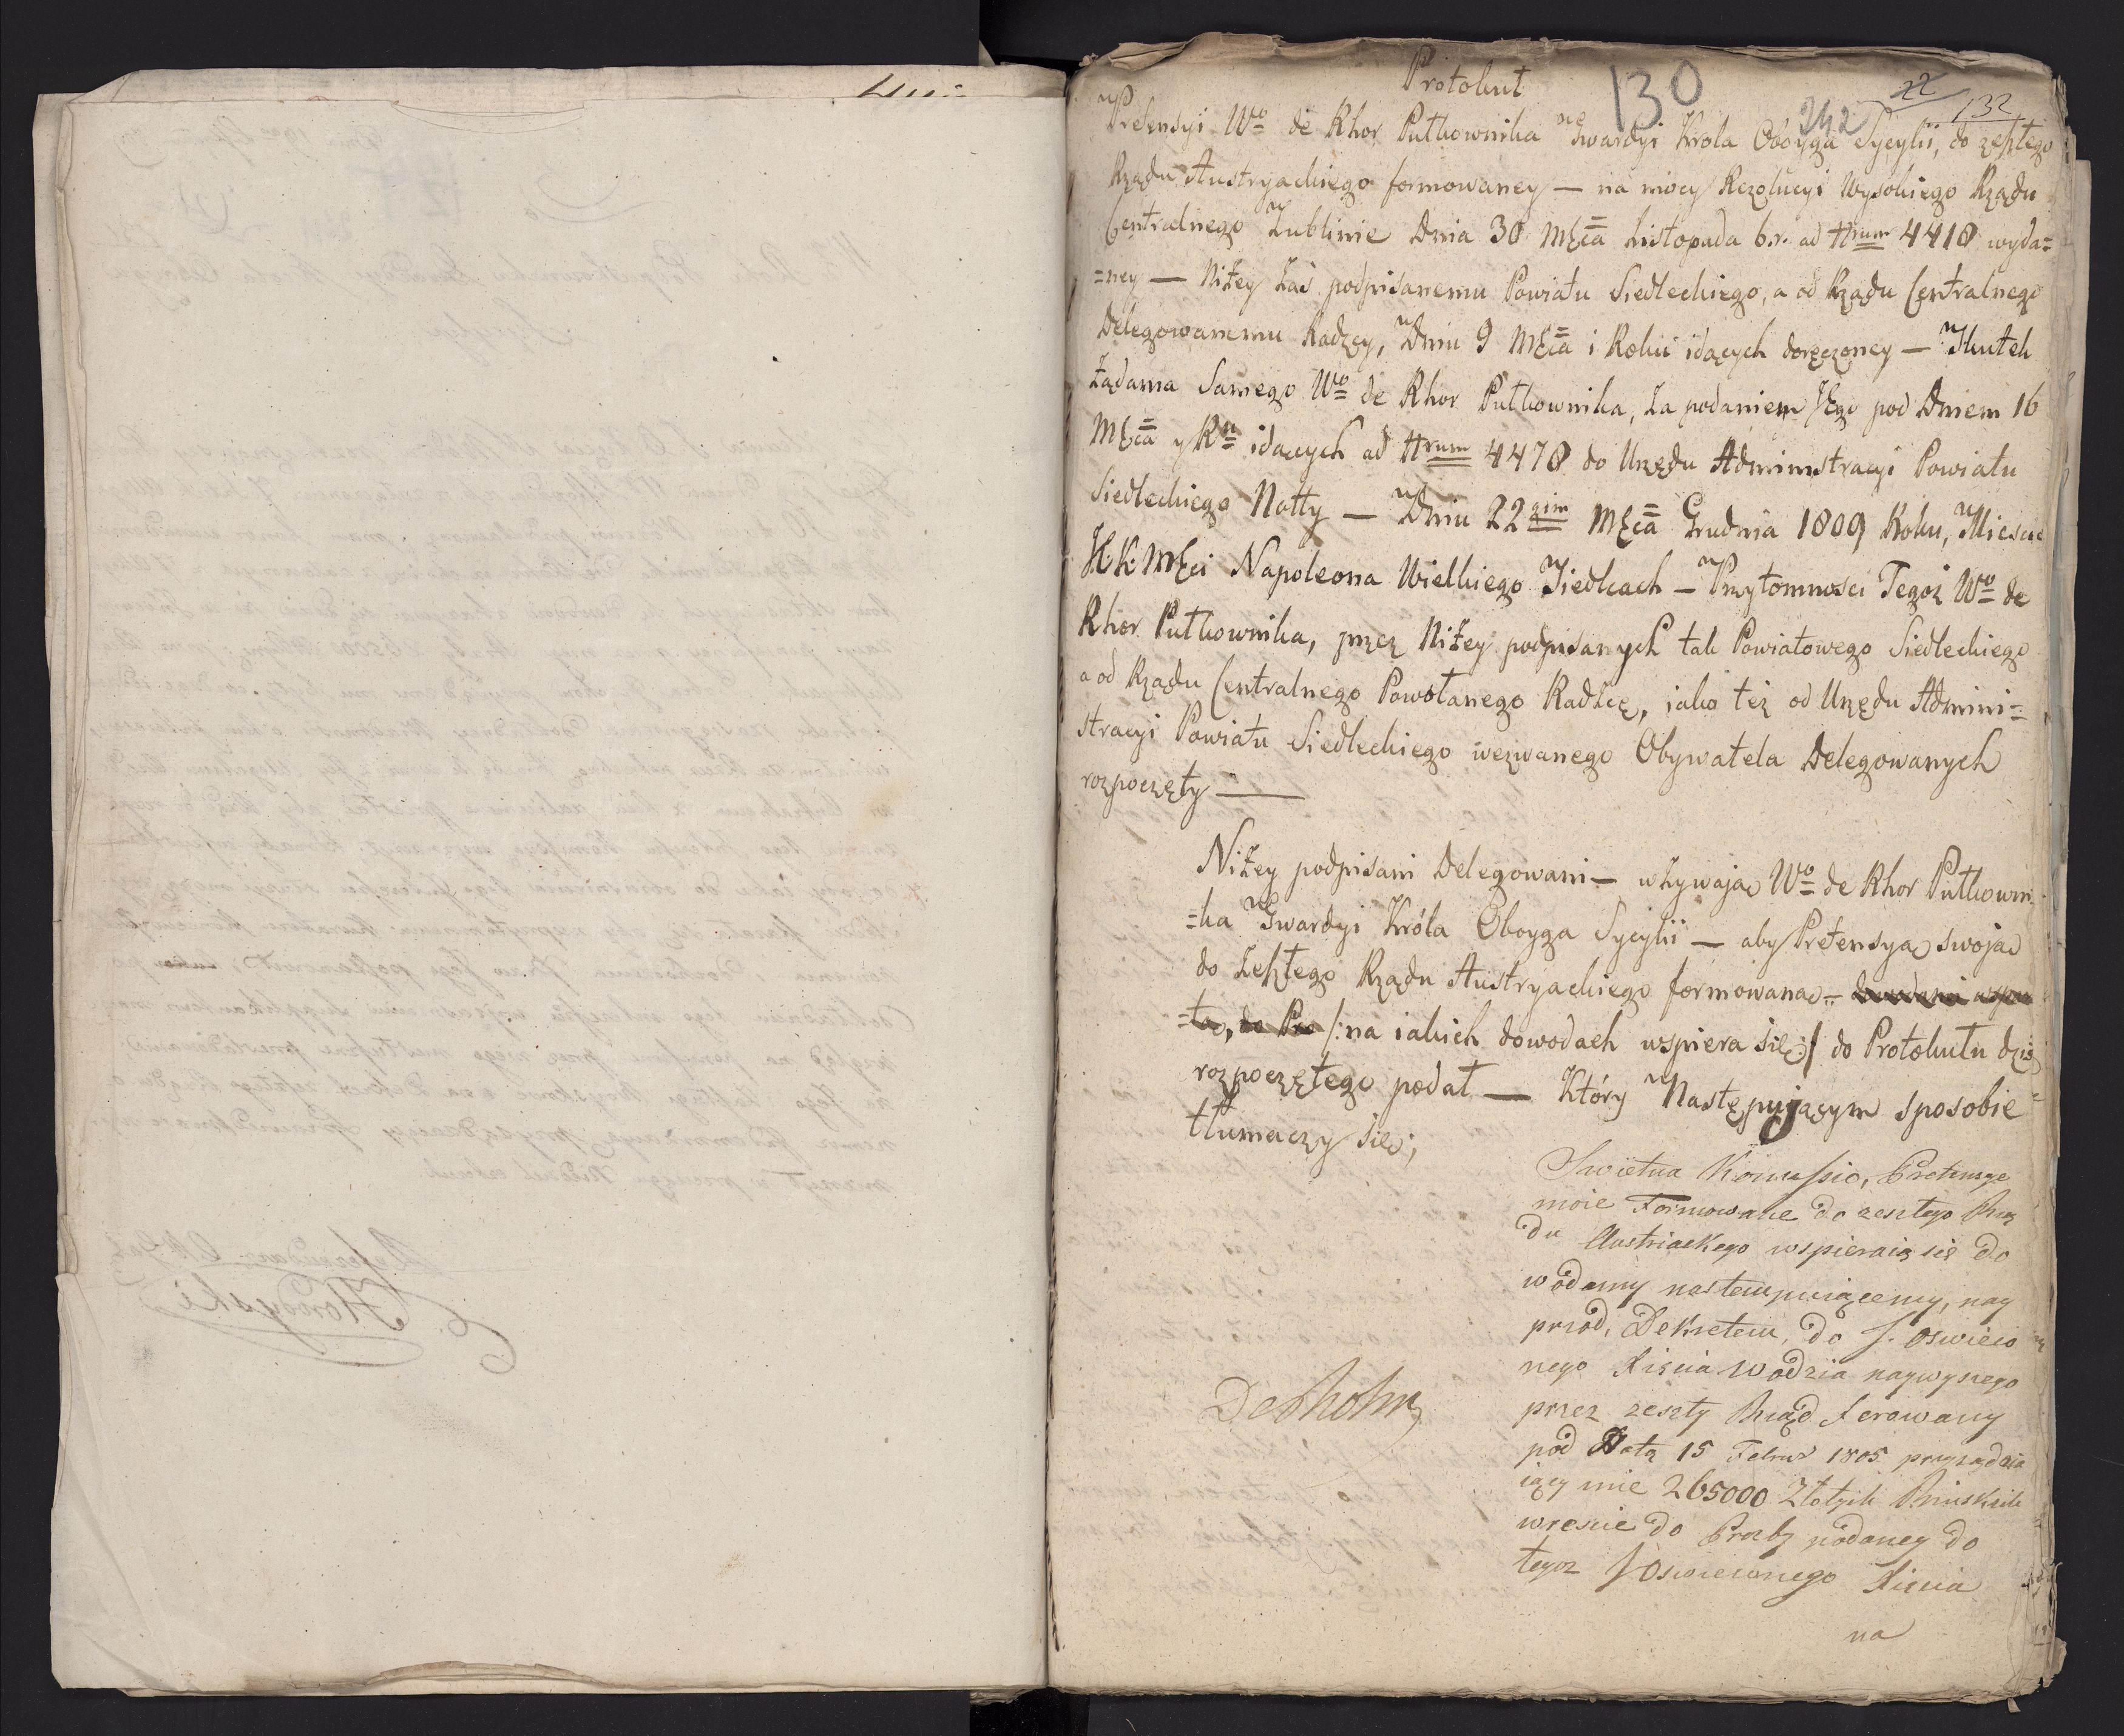 Protokuł
130
22
132
242
w Pretensyi Wo de Rhor Pułkownika w Gwardyi Krola Oboyga Sycylii, do zeszłego
Rządu Austryackiego formowaney — na mocy Rezolucyi Wysokiego Rządu
Centralnego w Lublinie Dnia 30 Męca Listopada b.r. ad Nrum 4418 wyda=
=ney — Niżey zaś podpisanemu Powiatu Siedleckiego, a od Rządu Centralnego
Delegowanemu Radzcy, w Dniu 9 Męca i Roku idących doręczoney — w Skutek
Żądania Samego Wo de Rhor Pułkownika, za podaniem Jego pod Dniem 16
Męca y Ru idących ad Nrum 4478 do Urzędu Administracyi Powiatu
Siedleckiego Notty — w Dniu 22gim Męca Grudnia 1809 Roku, w Miescie
J.K.Męci Napoleona Wielkiego w Siedlcach — w Przytomnosci Tegoz Wo de
Rhor Pułkownika, przez Niżey podpisanych tak Powiatowego Siedleckiego
a od Rządu Centralnego Powołanego Radzcę, iako też od Urzędu Admini=
stracyi Powiatu Siedleckiego wezwanego Obywatela Delegowanych
rozpoczęty —
Niżey podpisani Delegowani — wzywają Wo de Rhor Pułkowni
=ka w Gwardyi Króla Oboyga Sycylii — aby Pretensyą swoją
do Zeszłego Rządu Austryackiego formowaną —
/: na iakich dowodach wspiera się :/ do Protokułu dziś
rozpoczętego podał — Który w Następującym sposobie
tłumaczy się;
Swietna Komissio, Pretensye
moie Formowane do zeszłego Rzą
du Austriackego wspieraią się do
wodamy nastempuiącemy, nay
przod, Dekretem, do J. oswieco
nego Xiscia Wodzia naywyszego
przez zeszły Rząd ferowany
pod Datą 15 Febru 1805 przysądza
iący mie 265000 Złotych
do Prozby podaney do
tegoz JOswieconego Xiscia
na
De Rhohr